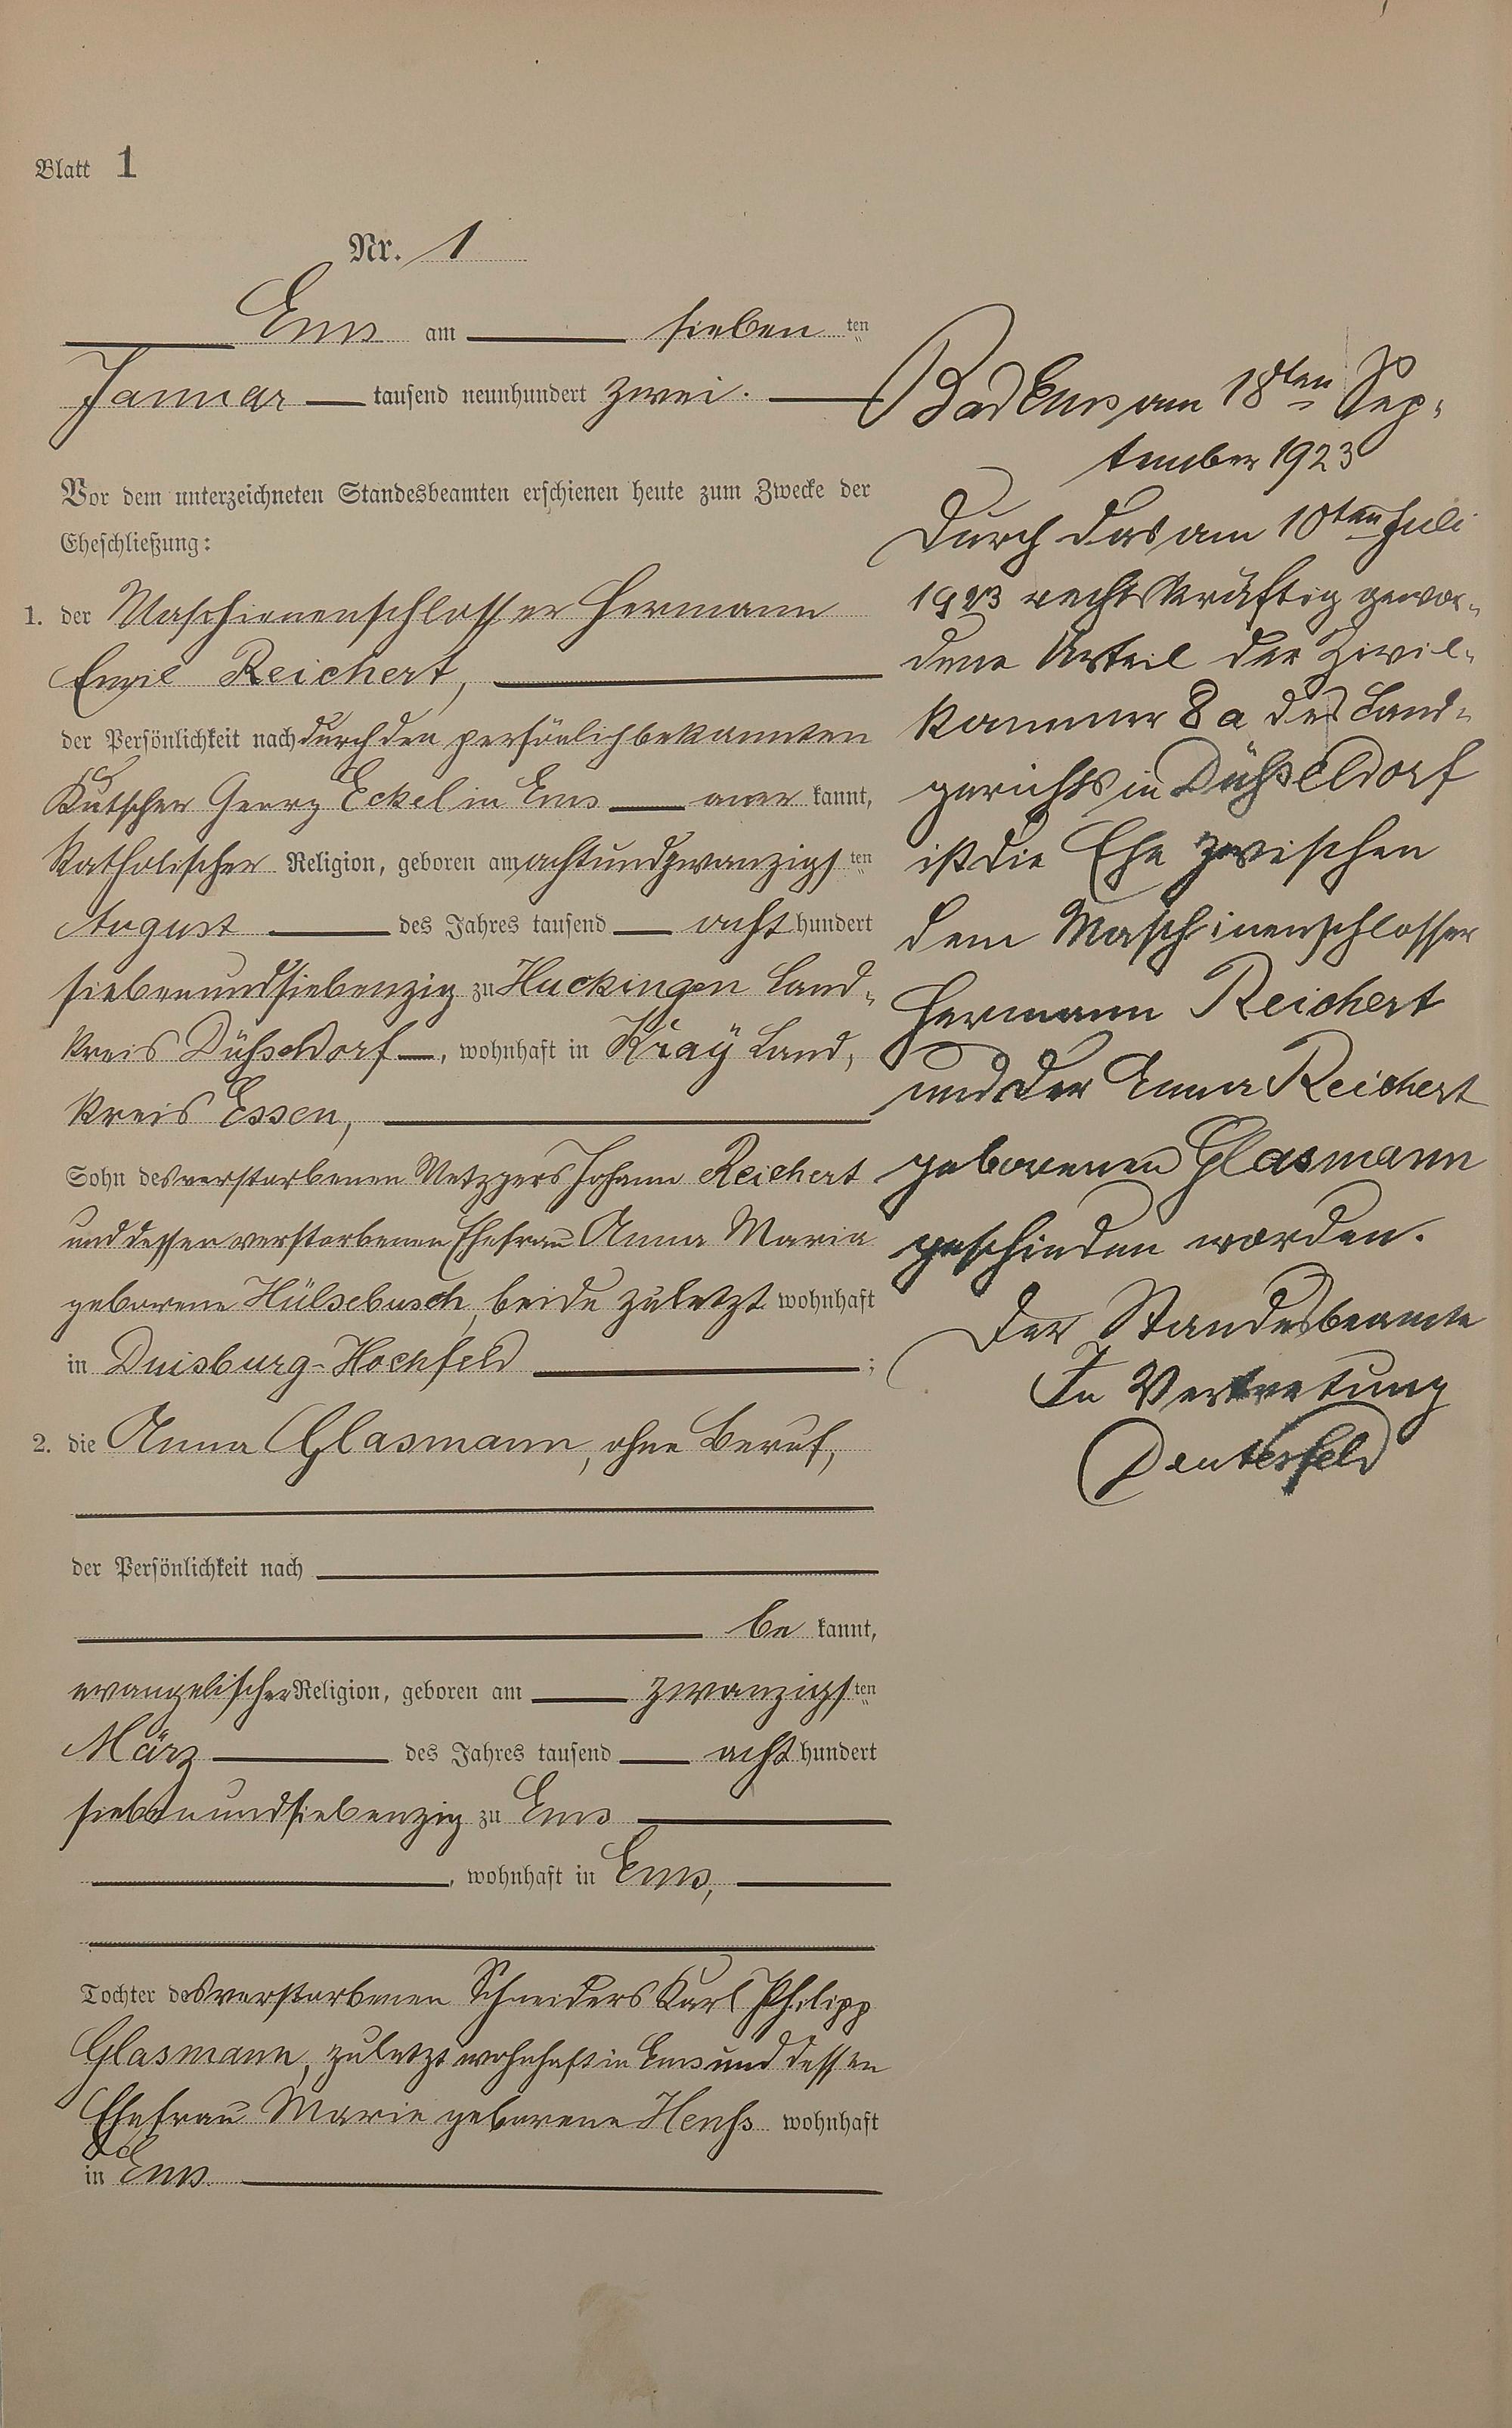 Blatt 1
Nr. 1
Ems am sieben ten
Januar tausend neunhundert zwei.
Vor dem unterzeichneten Standesbeamten erschienen heute zum Zwecke der
Eheschließung:
1. der Maschienenschlosser Hermann
Emil Reichert,
der Persönlichkeit nach durch den persönlich bekannten
Kutscher Georg Eckel in Ems aner kannt,
katholischer Religion, geboren am achtundzwanzigs ten
August des Jahres tausend acht hundert
siebenundsiebenzig zu Huckingen Land-
kreis Düßeldorf, wohnhaft in Kray Land,
kreis Essen,
Sohn des verstorbenen Metzgers Johann Reichert
und dessen verstorbenen Ehefrau Anna Maria
geborene Hülsebusch, beide zuletzt wohnhaft
in Duisburg-Hochfeld ;
2. die Anna Glasmann, ohne Beruf,
der Persönlichkeit nach
be kannt,
evangelischer Religion, geboren am zwanzigs ten
März des Jahres tausend acht hundert
siebenundsiebenzig zu Ems
, wohnhaft in Ems,
Tochter des verstorbenen Schneiders Karl Philipp
Glasmann, zuletzt wohnhaft in Ems und dessen
Ehefrau Marie geborene Henß wohnhaft
in Ems.
Bad Ems am 18ten Sep-
tember 1923
Durch das am 10ten Juli
1923 rechtskräftig gewor-
dene Urteil der Zivil-
kammer 8a des Land-
gerichts in Düßeldorf
ist die Ehe zwischen
dem Maschinenschlosser
Hermann Reichert
und der Anna Reichert
geborenen Glasmann
geschieden worden.
Der Standesbeamte
In Vertretung